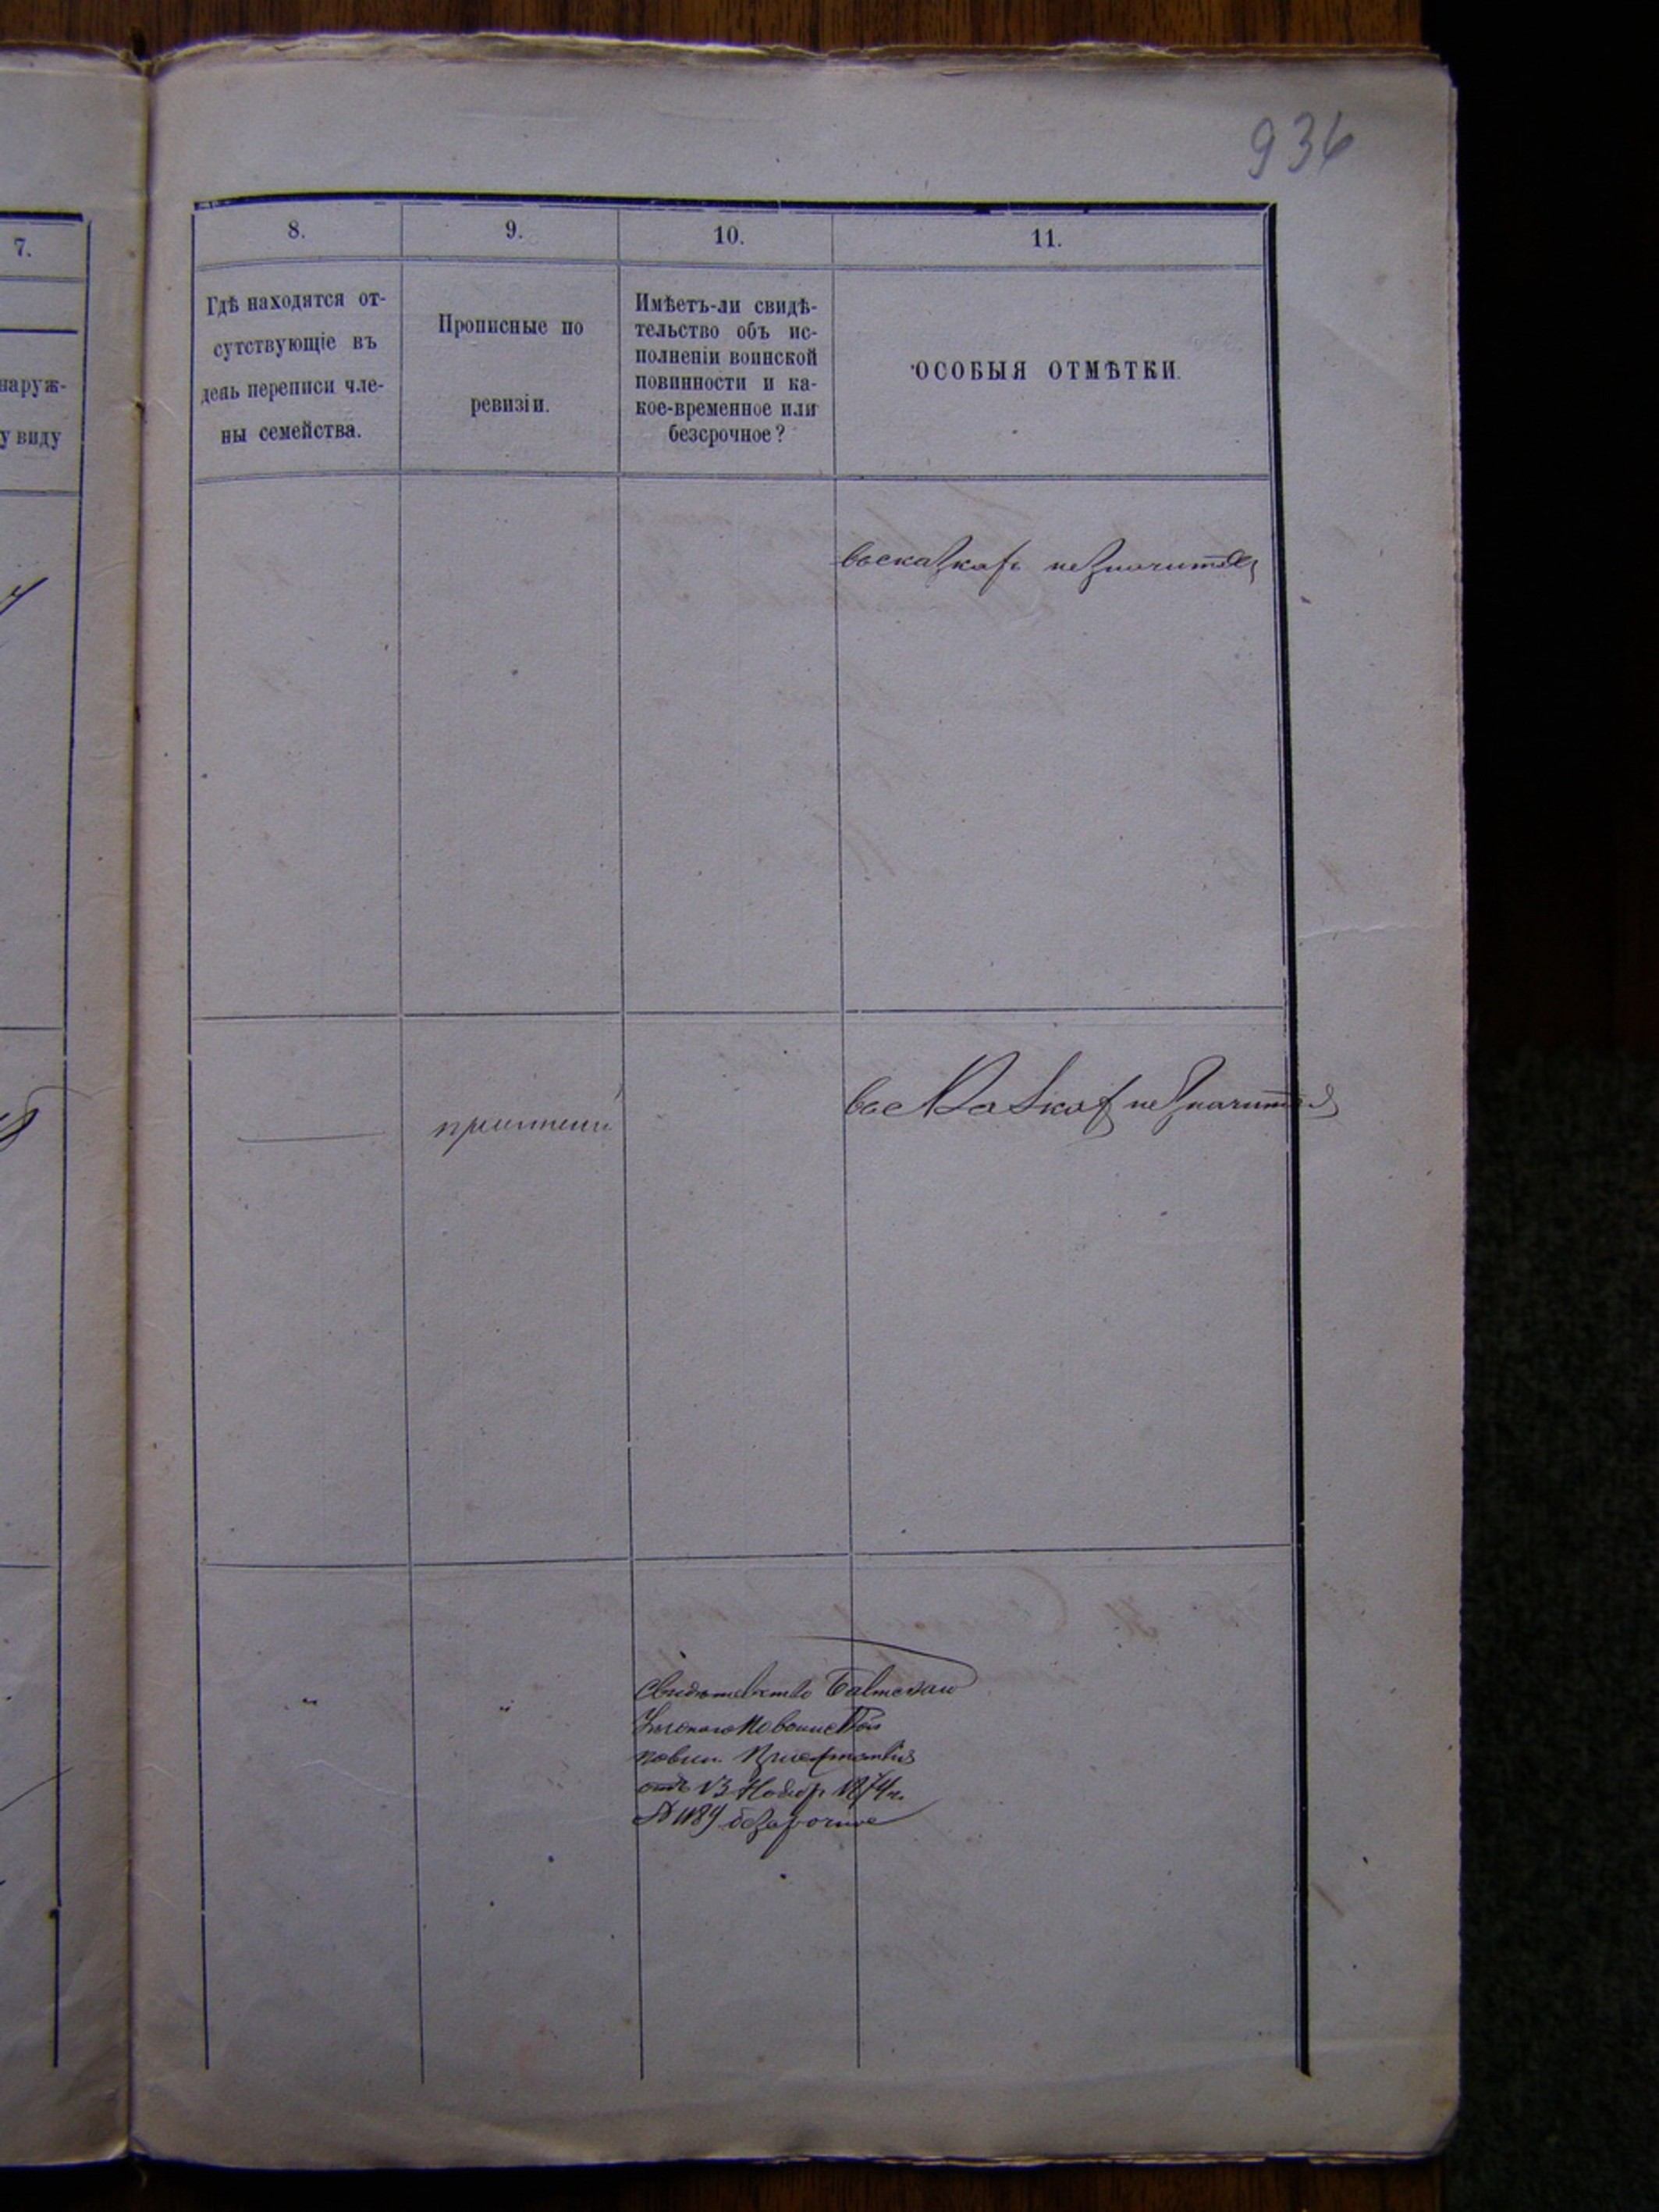 936
7.
8.
9.
10.
11.
наруж-
у виду
Гдѣ находятся от-
сутствующіе въ
день переписи чле-
ны семейства.
Прописные по
ревизіи.
Имѣетъ-ли свидѣ-
тельство объ ис-
полненіи воинской
повинности и ка-
кое-временное или
безсрочное?
ОСОБЫЯ ОТМѢТКИ.
во сказкахъ не значится
во сказках не значится
Свидѣтельство
повин. Присутствія
отъ 13 Ноябр. 1874 г.
№ 1189 безсрочное